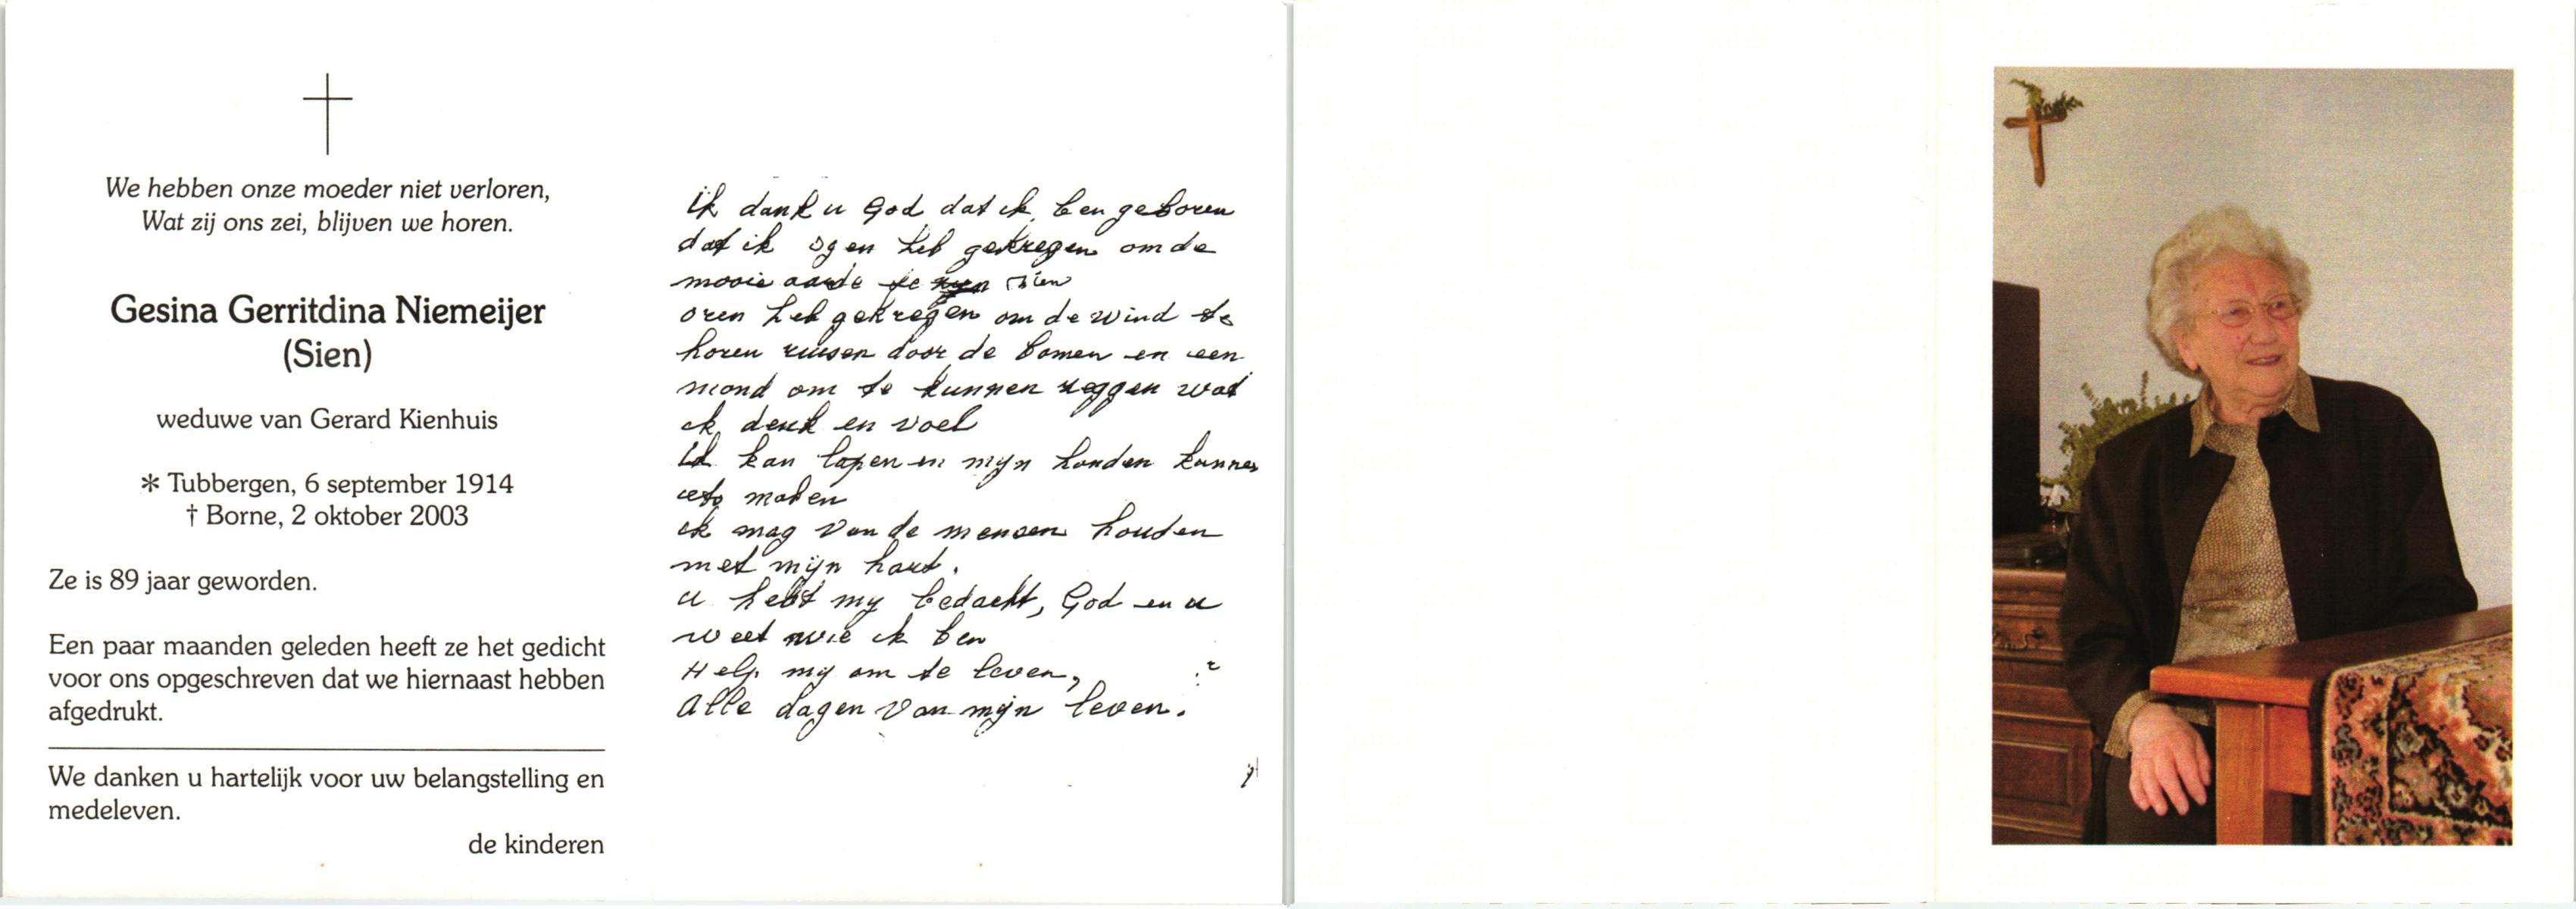 We hebben onze moeder niet verloren,
Wat zij ons zei, blijven we horen.
Gesina Gerritdina Niemeijer
(Sien)
weduwe van Gerard Kienhuis
* Tubbergen, 6 september 1914
† Borne, 2 oktober 2003
Ze is 89 jaar geworden.
Een paar maanden geleden heeft ze het gedicht
voor ons opgeschreven dat we hiernaast hebben
afgedrukt.
We danken u hartelijk voor uw belangstelling en
medeleven.
de kinderen
Ik dank u God dat ik ben geboren
dat ik ogen heb gekregen om de
mooie aarde te zien
oren heb gekregen om de wind te
horen ruisen door de bomen en een
mond om te kunnen zeggen wat
ik denk en voel
Ik kan lopen en mijn handen kunnen
iets maken
ik mag van de mensen houden
met mijn hart.
u hebt my bedacht, God en u
weet wie ik ben
Help my om te leven,
Alle dagen van mijn leven.